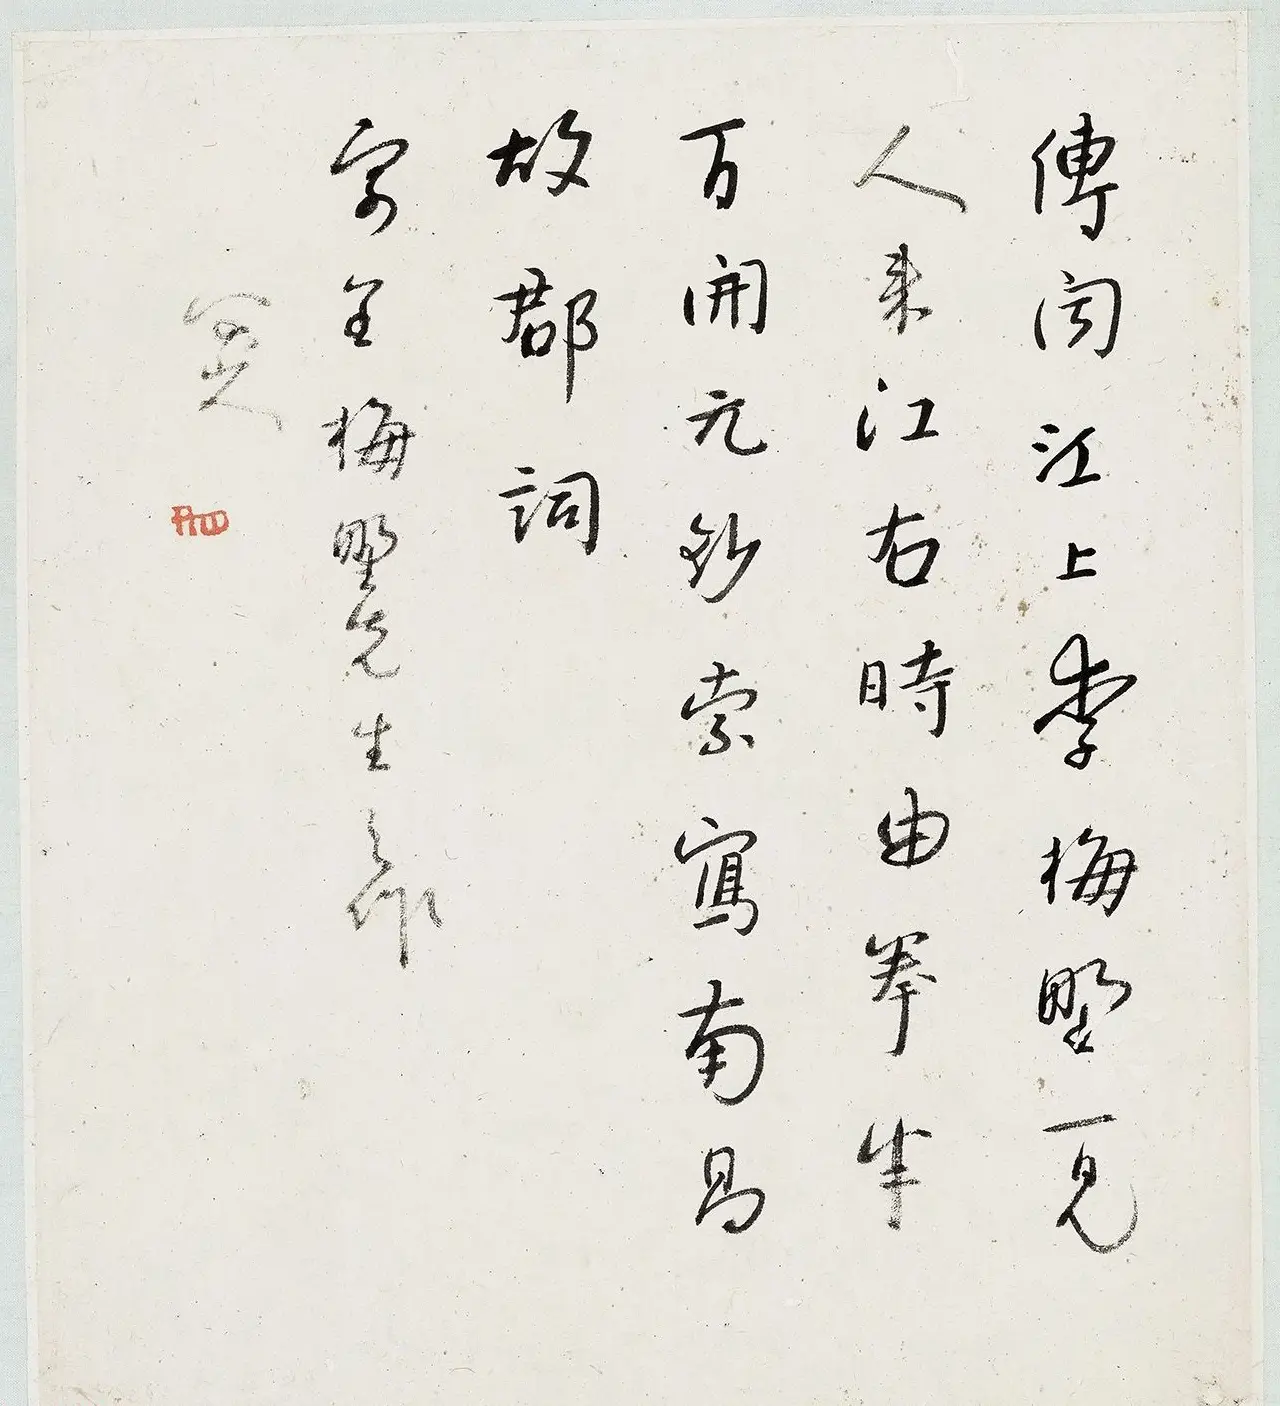 傳聞江上李梅野一見
人來江右時由拳半
百開元鈔索寫南昌
故郡詞
寄呈梅野先生之作
八大山人